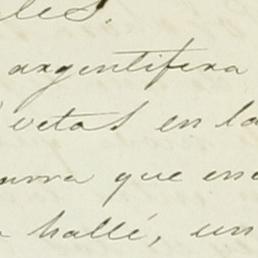 les.
argentifera
vetas en la
que
hallé, un